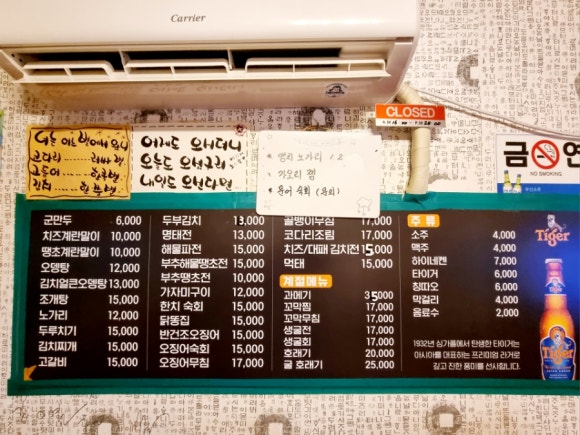 Carrier
CLOSED
어제도 오시더니
오늘도 오셨구려
내일도 오신다면
금연
NO SMOKING
군만두 6,000
치즈계란말이 10,000
땡초계란말이 10,000
오뎅탕 12,000
김치얼큰오뎅탕 13,000
조개탕 15,000
노가리 12,000
두루치기 15,000
김치찌개 15,000
고갈비 15,000
두부김치 13,000
명태전 13,000
해물파전 15,000
부추해물땡초전 15,000
부추땡초전 10,000
가자미구이 12,000
한치 숙회 15,000
닭똥집 15,000
반건조오징어 15,000
오징어숙회 15,000
오징어무침 17,000
골뱅이무침 17,000
코다리조림 17,000
치즈/대패 김치전 15,000
먹태 15,000
계절메뉴
과메기 35,000
꼬막찜 17,000
꼬막무침 17,000
생굴전 17,000
생굴회 17,000
호래기 20,000
굴 호래기 25,000
주 류
소주 4,000
맥주 4,000
하이네켄 7,000
타이거 6,000
칭따오 6,000
막걸리 4,000
음료수 2,000
1932년 싱가폴에서 탄생한 타이거는
아시아를 대표하는 프리미엄 라거로
깊고 진한 풍미를 선사합니다.
Tiger
Tiger